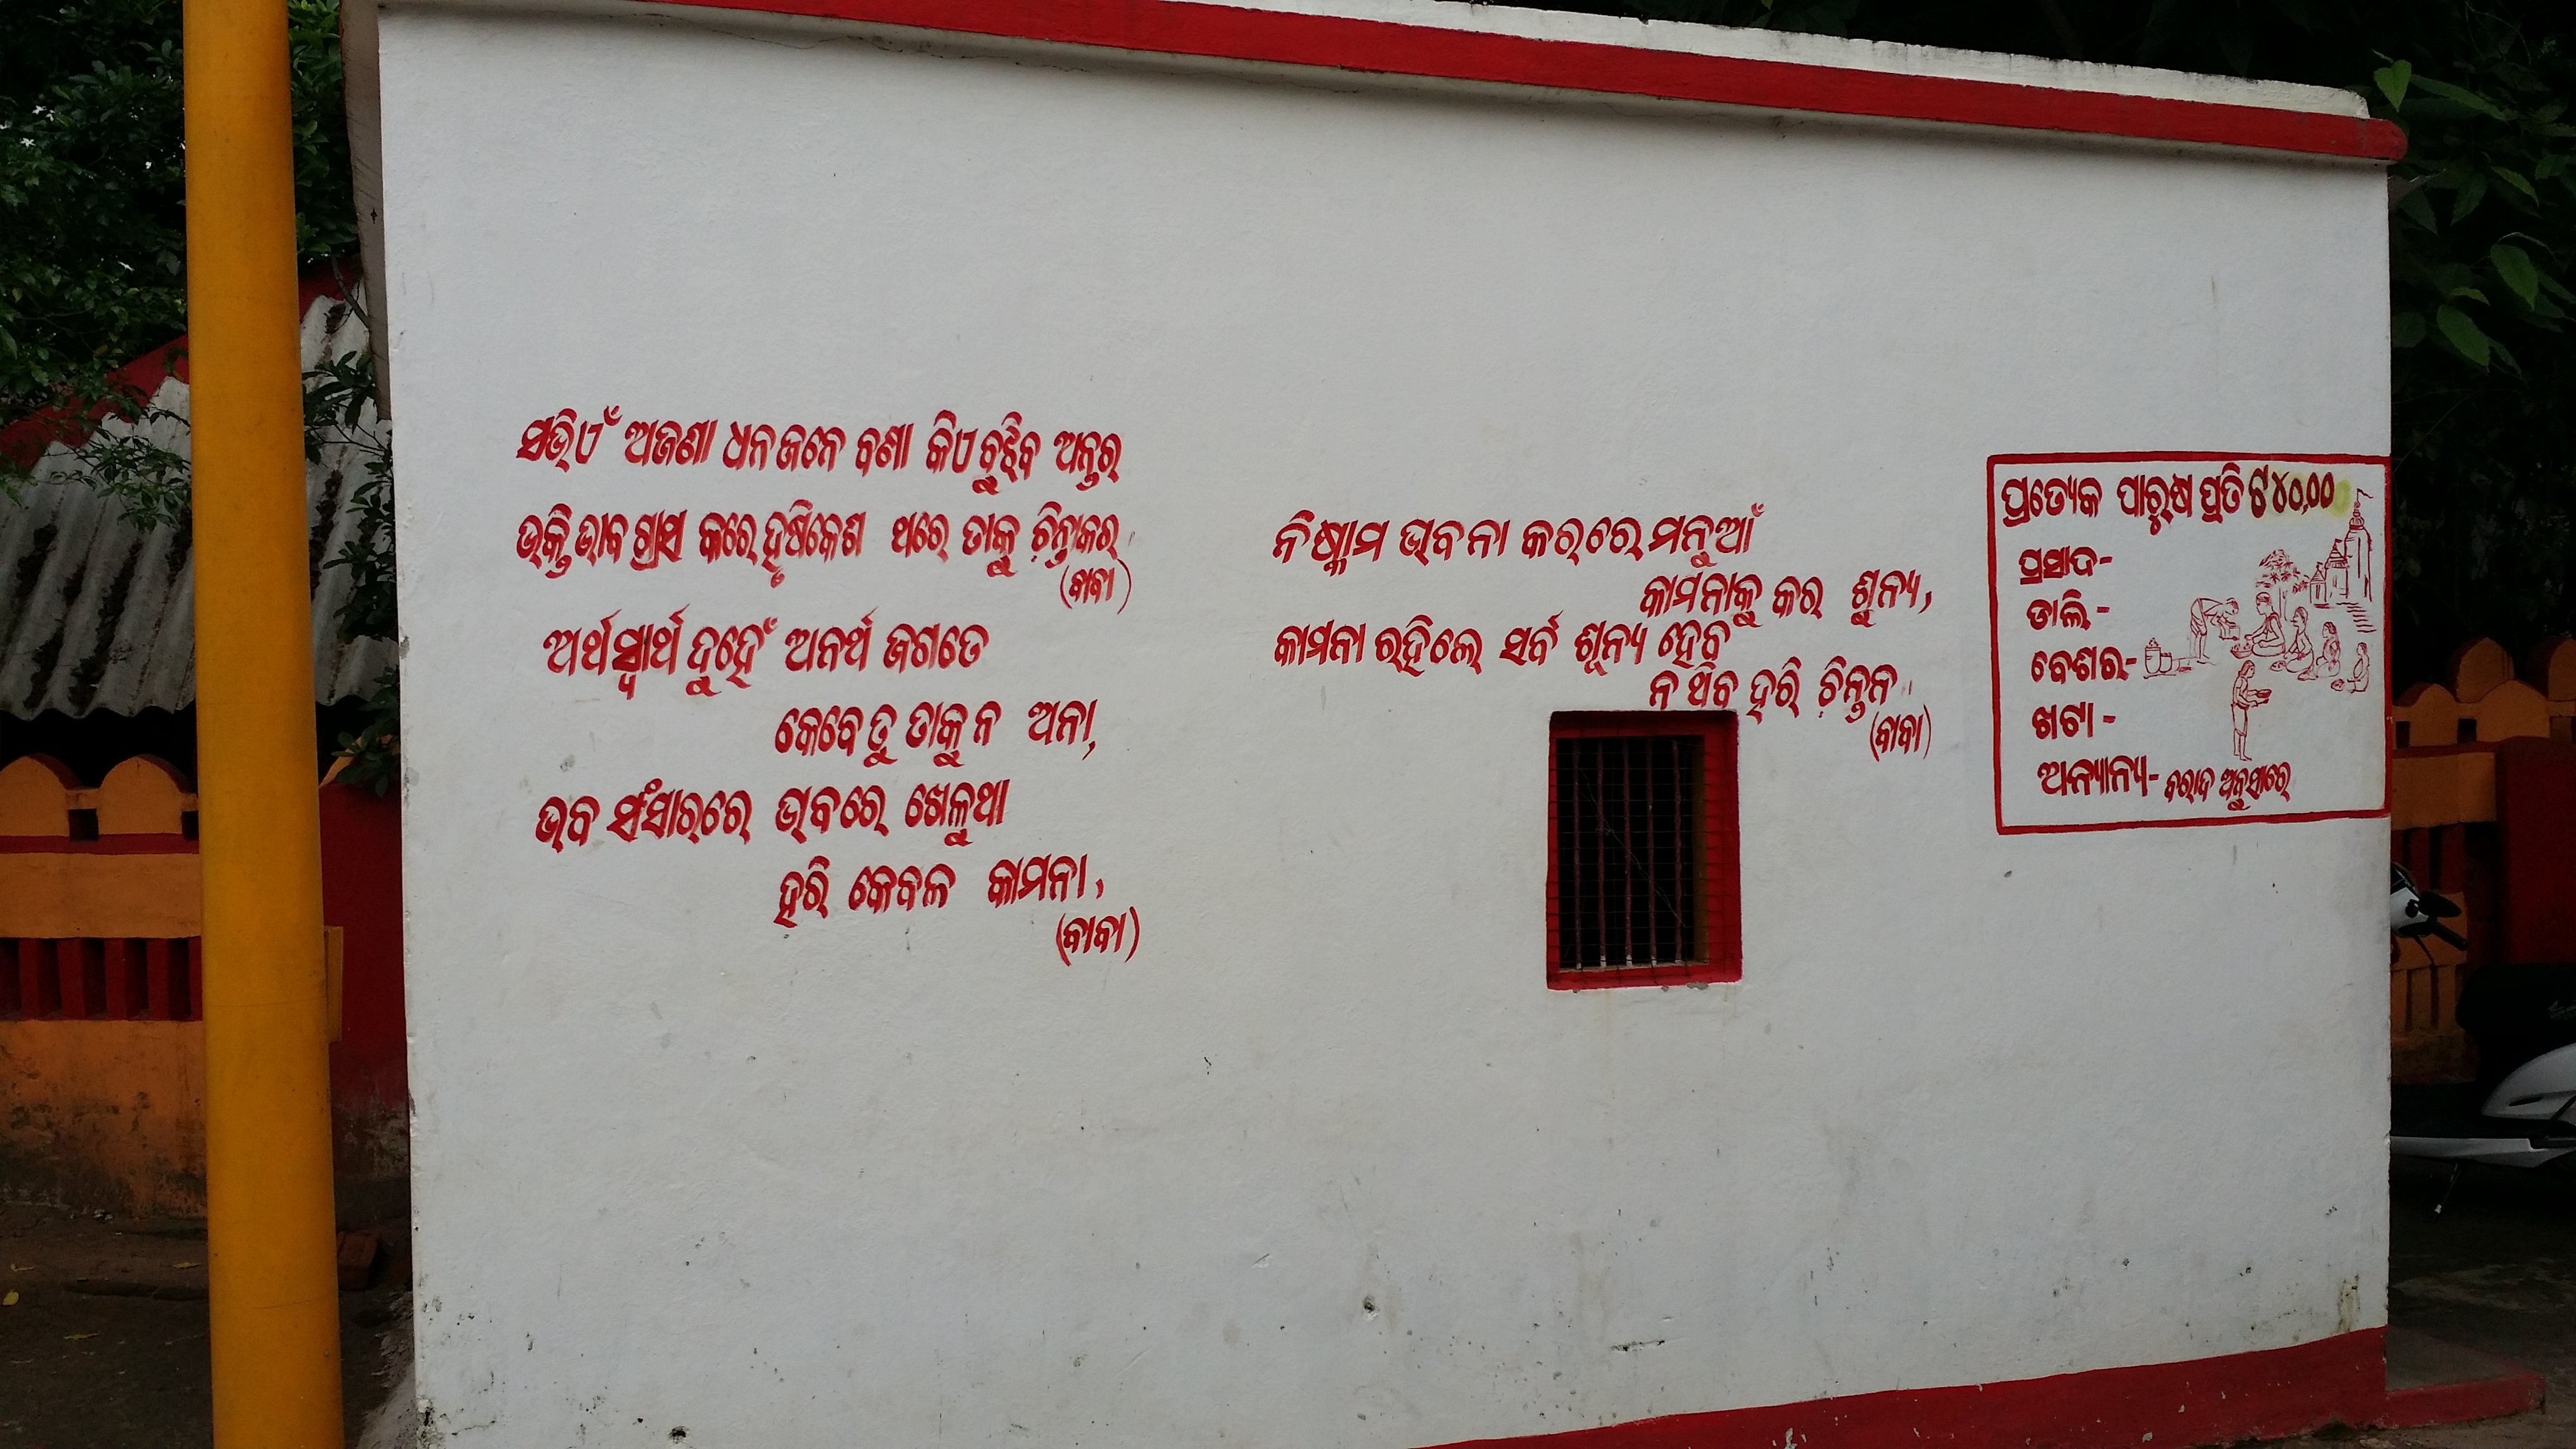 ସଭିଏଁ ଅଜଣା ଧନ ଜନେ ବଣା କିଏ ବୁଝିବ ଅନ୍ତର
ଭକ୍ତି ଭାବ ଗ୍ରାସ କରେ ହୃଷିକେଶ ଥରେ ତାକୁ ଚିନ୍ତାକର
(ବାବା)
ଅର୍ଥ ସ୍ୱାର୍ଥ ଦୁହେଁ ଅନର୍ଥ ଜଗତେ
କେବେ ତୁ ତାକୁ ନ ଅନା,
ଭବ ସଂସାରରେ ଭାବରେ ଖେଳୁଥା
ହରି କେବଳ କାମନା,
(ବାବା)
ନିଷ୍କାମ ଭାବନା କରରେ ମନୁଆଁ
କାମନାକୁ କର ଶୁନ୍ୟ,
କାମନା ରହିଲେ ସର୍ବ ଶୂନ୍ୟ ହେବ
ନ ଥିବ ହରି ଚିନ୍ତନ
(ବାବା)
ପ୍ରତ୍ୟେକ ପାରୁଷ ପ୍ରତି ଟ ୪୦.୦୦
ପ୍ରସାଦ-
ଡାଲି-
ବେଶର-
ଖଟା-
ଅନ୍ୟାନ୍ୟ- ବରାଦ ଅନୁସାରେ